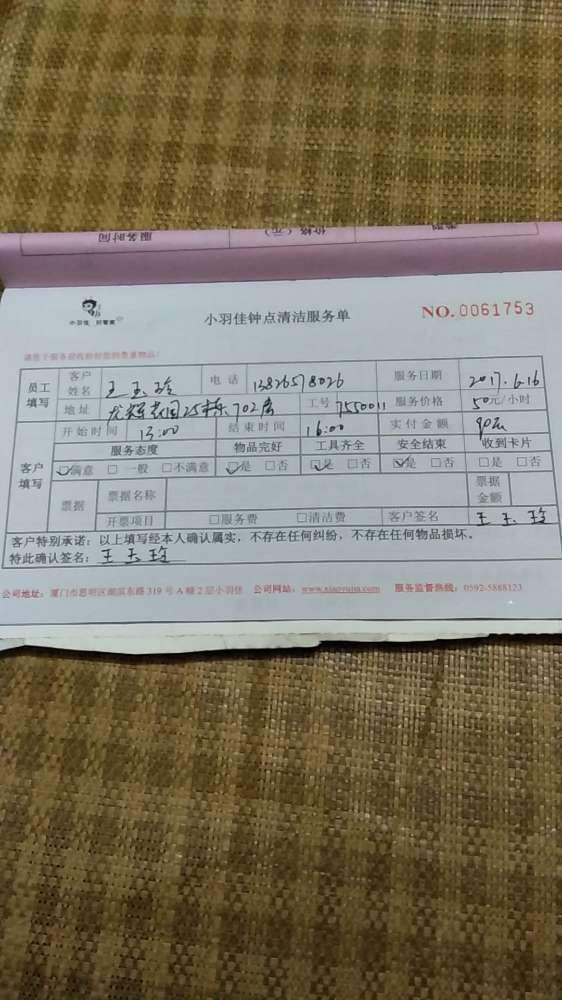 服务时间 价格（元） 类型
小羽佳 好管家
小羽佳钟点清洁服务单
NO. 0061753
员工填写 客户姓名 王玉玲 电话 13826578026 服务日期 2017.6.16
地址 25栋702房 工号 7550011 服务价格 50元/小时
客户填写 开始时间 13:00 结束时间 16:00 实付金额 90元
服务态度 物品完好 工具齐全 安全结束 收到卡片
☑满意 □一般 □不满意 ☑是 □否 ☑是 □否 ☑是 □否 □是 □否
票据 票据名称 票据金额
开票项目 □服务费 □清洁费 客户签名 王玉玲
客户特别承诺：以上填写经本人确认属实，不存在任何纠纷，不存在任何物品损坏。
特此确认签名：王玉玲
公司地址：厦门市思明区湖滨东路319号A幢2层小羽佳 公司网站：www.xiaoyujia.com 服务监督热线：0592-5888123